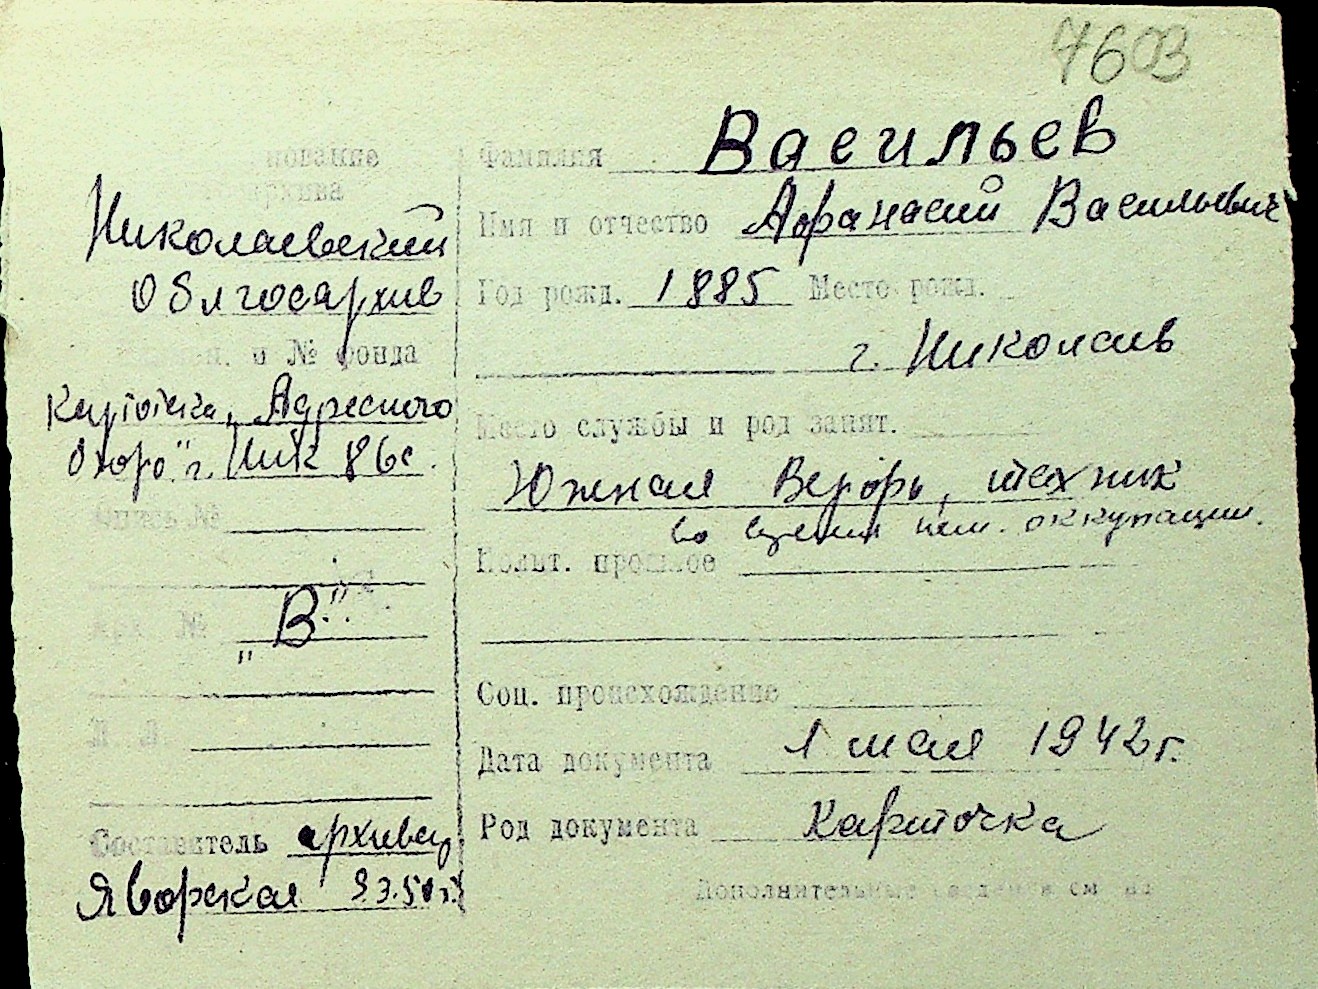 7603
нование
архива
Николаевский
Облгосархив
и № фонда
Картотека „Адресного
бюро" г. Ник
Опись №
Арх. №
„В"
Составитель архивец
Яворская
Фамилия Васильев
Имя и отчество Афанасий Васильевич
Год рожд. 1885 Место рожд.
г. Николаев
Место службы и род занят.
Южная Верфь, техник
во время нем. оккупации.
Полит. прошлое
Соц. происхождение
Дата документа 1 мая 1942 г.
Род документа Карточка
Дополнительные сведения см. на